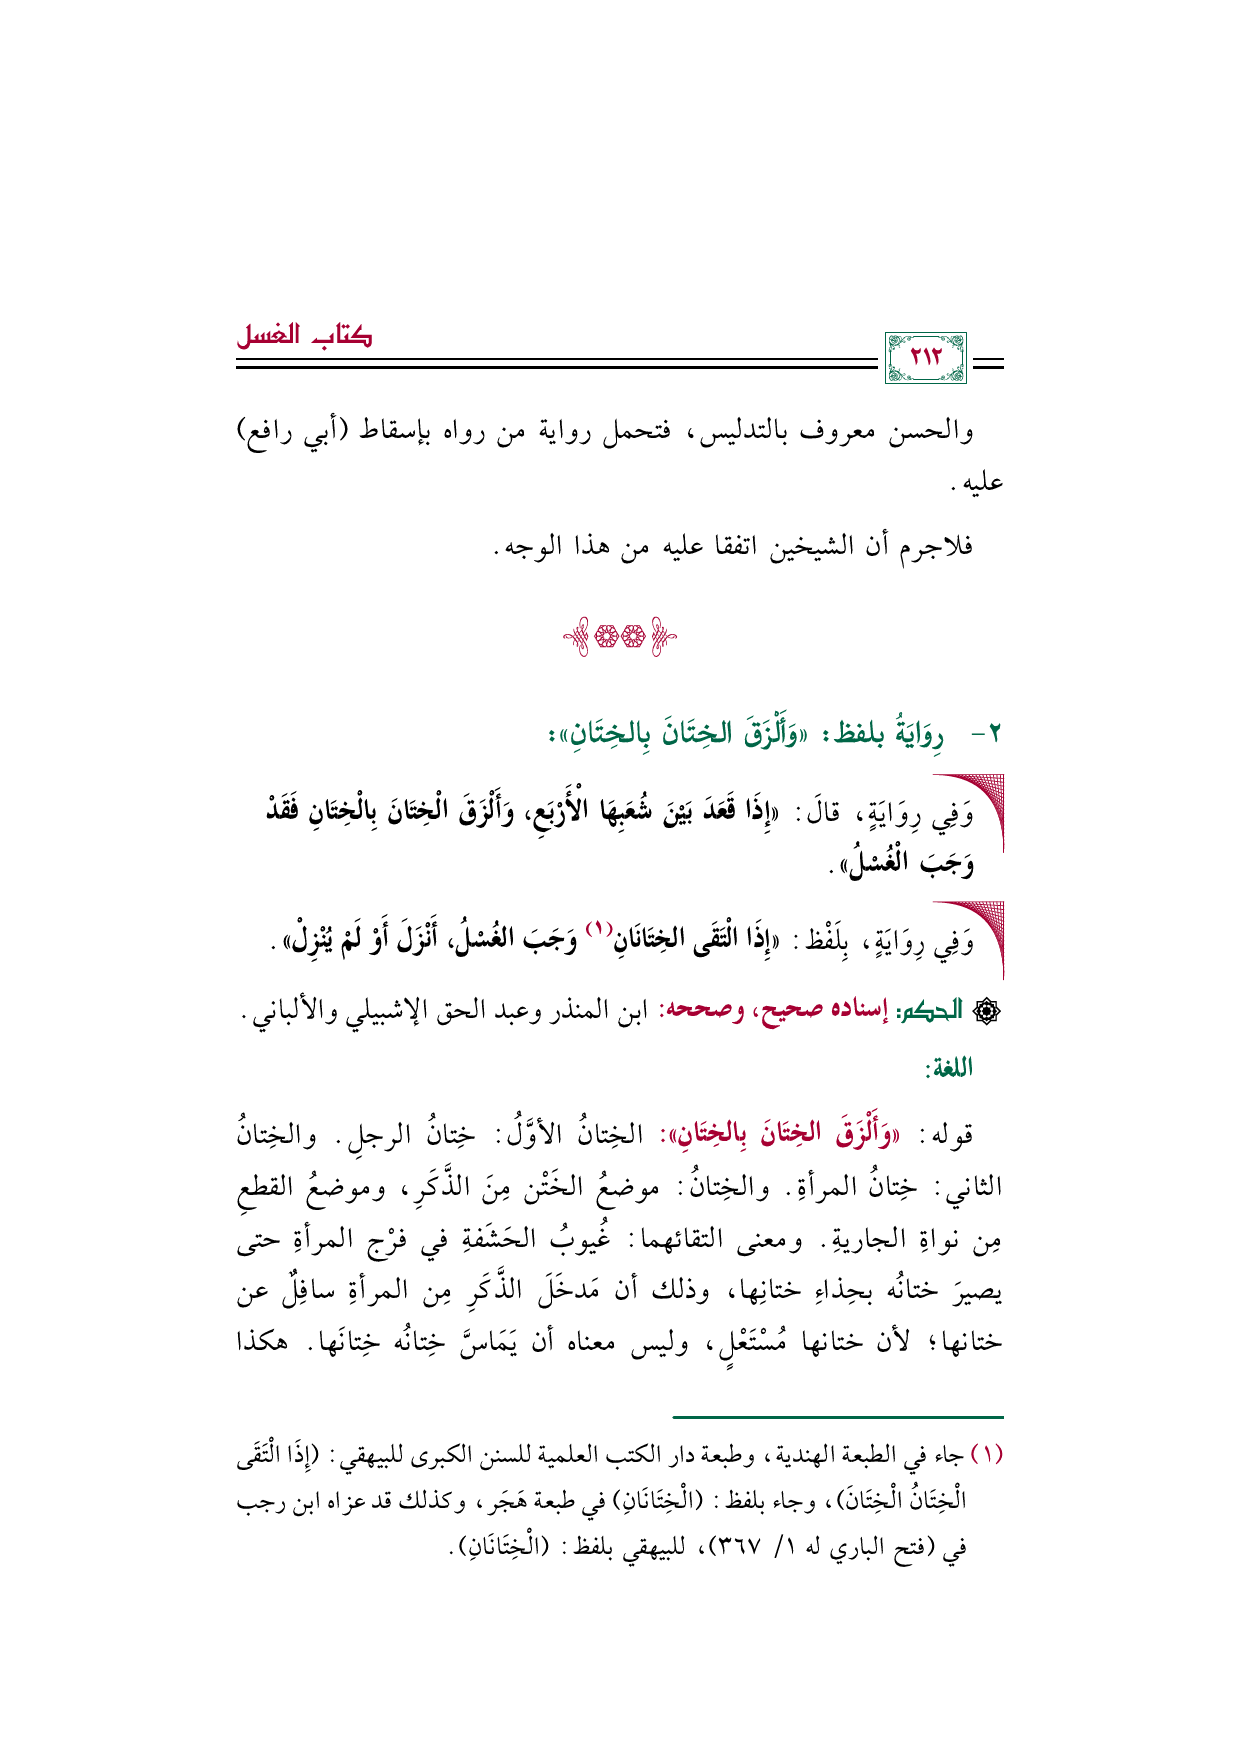 كتاب الغسل
٢١٢
والحسن معروف بالتدليس، فتحمل رواية من رواه بإسقاط (أبي رافع)
عليه.
فلاجرم أن الشيخين اتفقا عليه من هذا الوجه.
٢- رِوَايَةُ بلفظ: «وَأَلْزَقَ الخِتَانَ بِالخِتَانِ»:
وَفِي رِوَايَةٍ، قالَ: «إِذَا قَعَدَ بَيْنَ شُعَبِهَا الْأَرْبَعِ، وَأَلْزَقَ الْخِتَانَ بِالْخِتَانِ فَقَدْ
وَجَبَ الْغُسْلُ».
وَفِي رِوَايَةٍ، بِلَفْظ: «إِذَا الْتَقَى الخِتَانَانِ(١) وَجَبَ الغُسْلُ، أَنْزَلَ أَوْ لَمْ يُنْزِلْ».
الحكم: إسناده صحيح، وصححه: ابن المنذر وعبد الحق الإشبيلي والألباني.
اللغة:
قوله: «وَأَلْزَقَ الخِتَانَ بِالخِتَانِ»: الخِتانُ الأوَّلُ: خِتانُ الرجلِ. والخِتانُ
الثاني: خِتانُ المرأةِ. والخِتانُ: موضعُ الخَتْن مِنَ الذَّكَرِ، وموضعُ القطعِ
مِن نواةِ الجاريةِ. ومعنى التقائهما: غُيوبُ الحَشَفةِ في فرْج المرأةِ حتى
يصيرَ ختانُه بحِذاءِ ختانِها، وذلك أن مَدخَلَ الذَّكَرِ مِن المرأةِ سافِلٌ عن
ختانها؛ لأن ختانها مُسْتَعْلٍ، وليس معناه أن يَمَاسَّ خِتانُه خِتانَها. هكذا
(١) جاء في الطبعة الهندية، وطبعة دار الكتب العلمية للسنن الكبرى للبيهقي: (إِذَا الْتَقَى
الْخِتَانُ الْخِتَانَ)، وجاء بلفظ: (الْخِتَانَانِ) في طبعة هَجَر، وكذلك قد عزاه ابن رجب
في (فتح الباري له ١/ ٣٦٧)، للبيهقي بلفظ: (الْخِتَانَانِ).